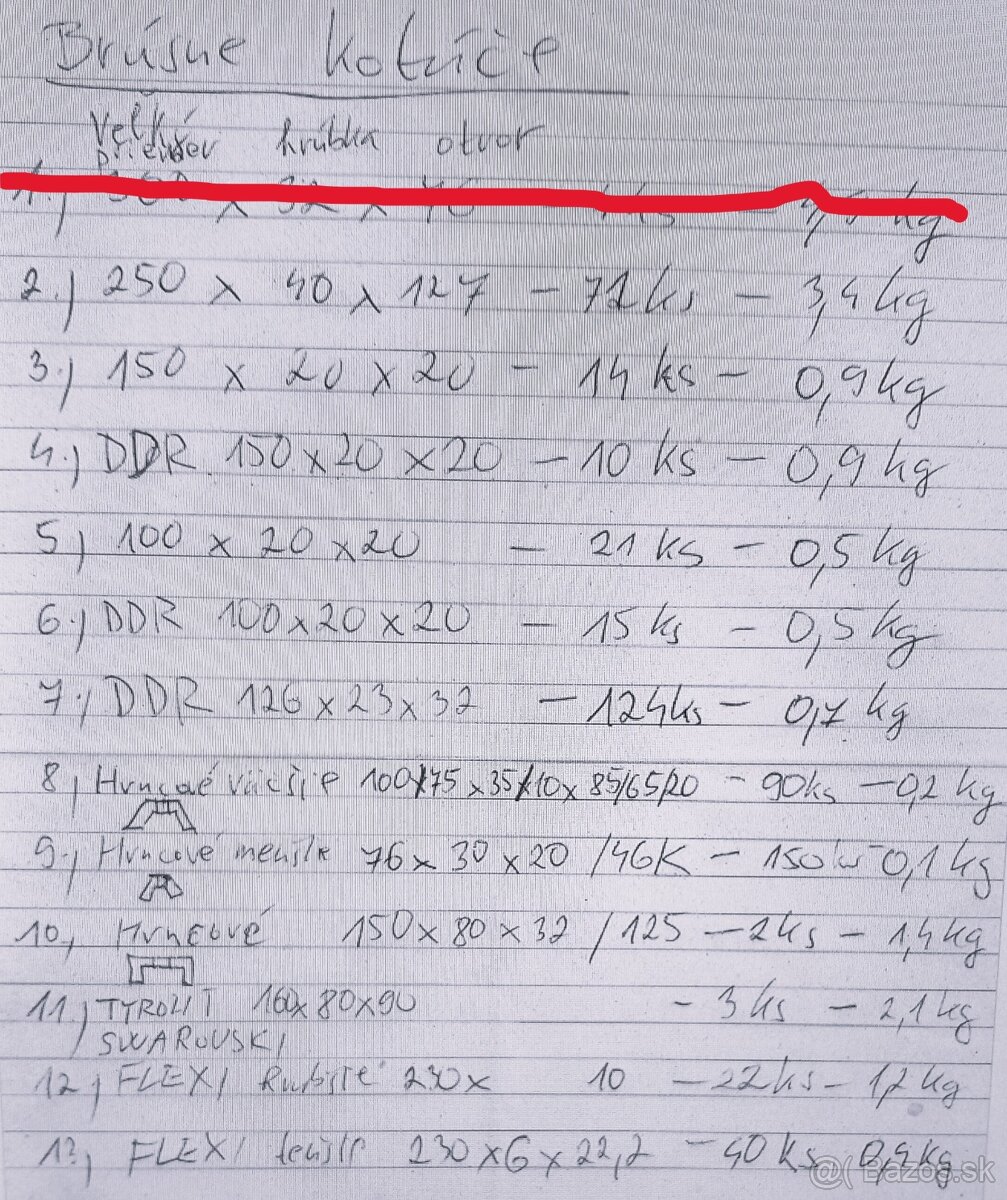 Brúsne kotúče
Veľký
priemer hrúbka otvor
1.) x 32 x kg
2.) 250 x 40 x 127 - ks - 3,4 kg
3.) 150 x 20 x 20 - 14 ks - 0,9 kg
4.) DDR 150 x 20 x 20 - 10 ks - 0,9 kg
5.) 100 x 20 x 20 - 21 ks - 0,5 kg
6.) DDR 100 x 20 x 20 - 15 ks - 0,5 kg
7.) DDR 126 x 23 x 32 - 124 ks - 0,7 kg
8.) Hrncové väčšie 100/75 x 35/10 x 85/65/20 - 90 ks - 0,2 kg
9.) Hrncové menšie 76 x 30 x 20 /46K - 150 - 0,1 kg
10.) Hrncové 150 x 80 x 32 /125 - 2 ks - 1,4 kg
11.) TYROLIT 160 x 80 x 90 - 3 ks - 2,1 kg
SWAROVSKI
12.) FLEXI hrubšie 230 x 10 - 22 ks - 1,2 kg
13.) FLEXI tenšie 230 x 6 x 22,2 - 40 ks 0,4 kg
@( Bazos.sk